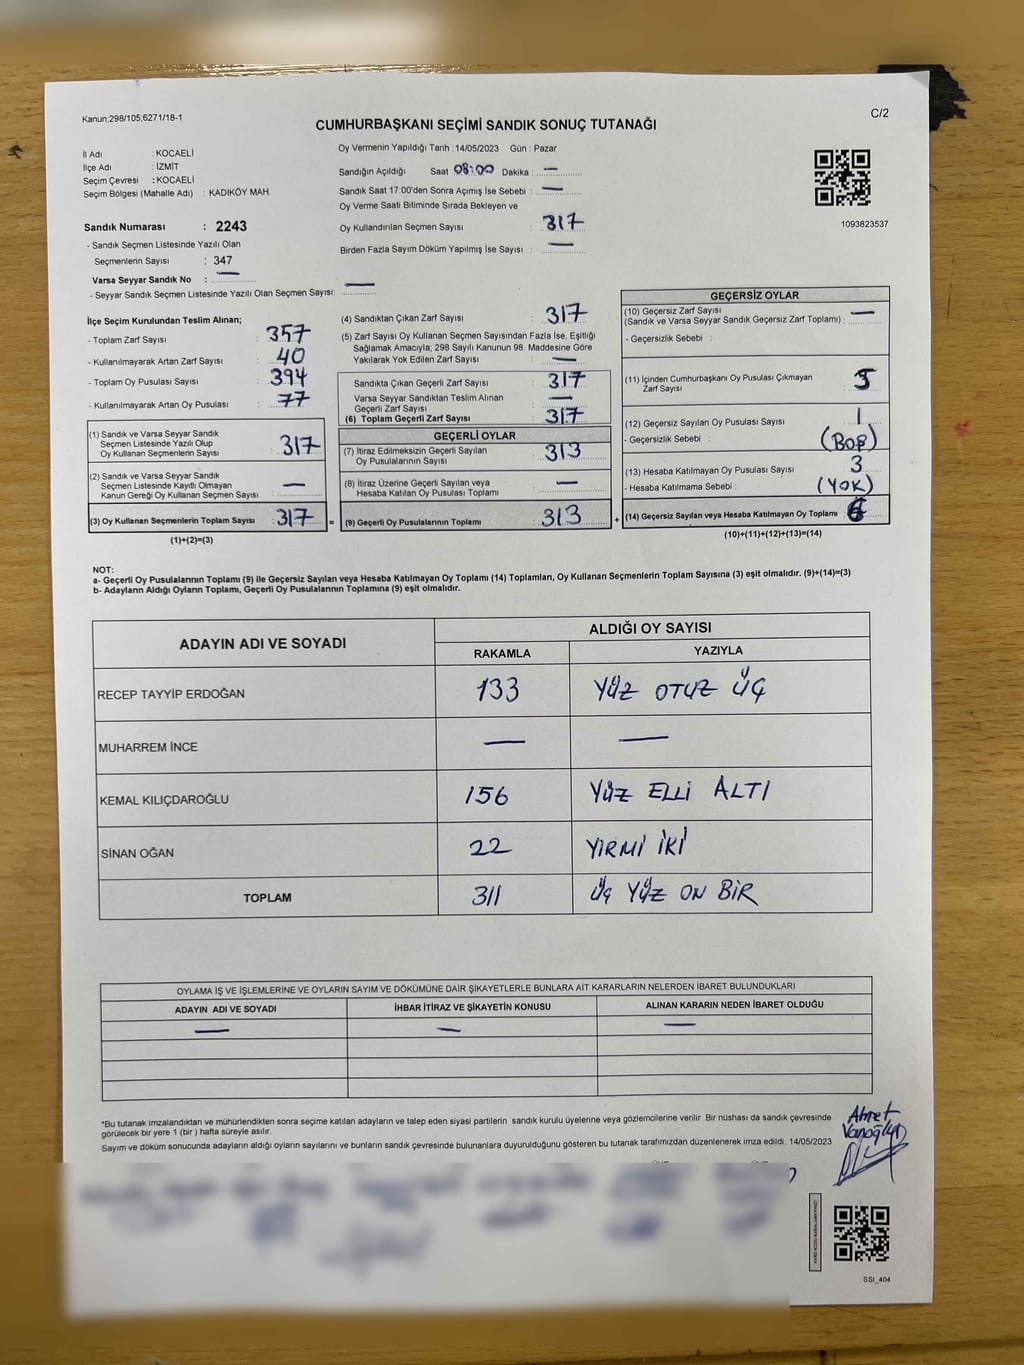 Kanun;298/105;6271/18-1
C/2
CUMHURBAŞKANI SEÇİMİ SANDIK SONUÇ TUTANAĞI
İl Adı : KOCAELİ
İlçe Adı : İZMİT
Seçim Çevresi : KOCAELİ
Seçim Bölgesi (Mahalle Adı) : KADIKÖY MAH.
Sandık Numarası : 2243
- Sandık Seçmen Listesinde Yazılı Olan
Seçmenlerin Sayısı : 347
Varsa Seyyar Sandık No : —
- Seyyar Sandık Seçmen Listesinde Yazılı Olan Seçmen Sayısı: —
Oy Vermenin Yapıldığı Tarih : 14/05/2023 Gün : Pazar
Sandığın Açıldığı Saat 08:00 Dakika : —
Sandık Saat 17:00'den Sonra Açımış İse Sebebi : —
Oy Verme Saati Bitiminde Sırada Bekleyen ve
Oy Kullandırılan Seçmen Sayısı : 317
Birden Fazla Sayım Döküm Yapılmış İse Sayısı : —
1093823537
İlçe Seçim Kurulundan Teslim Alınan;
- Toplam Zarf Sayısı : 357
- Kullanılmayarak Artan Zarf Sayısı : 40
- Toplam Oy Pusulası Sayısı : 394
- Kullanılmayarak Artan Oy Pusulası : 77
(1) Sandık ve Varsa Seyyar Sandık
Seçmen Listesinde Yazılı Olup
Oy Kullanan Seçmenlerin Sayısı : 317
(2) Sandık ve Varsa Seyyar Sandık
Seçmen Listesinde Kayıtlı Olmayan
Kanun Gereği Oy Kullanan Seçmen Sayısı : —
(3) Oy Kullanan Seçmenlerin Toplam Sayısı : 317 =
(1)+(2)=(3)
(4) Sandıktan Çıkan Zarf Sayısı : 317
(5) Zarf Sayısı Oy Kullanan Seçmen Sayısından Fazla İse, Eşitliği
Sağlamak Amacıyla; 298 Sayılı Kanunun 98. Maddesine Göre
Yakılarak Yok Edilen Zarf Sayısı : —
Sandıkta Çıkan Geçerli Zarf Sayısı : 317
Varsa Seyyar Sandıktan Teslim Alınan
Geçerli Zarf Sayısı : —
(6) Toplam Geçerli Zarf Sayısı : 317
GEÇERLİ OYLAR
(7) İtiraz Edilmeksizin Geçerli Sayılan
Oy Pusulalarının Sayısı : 313
(8) İtiraz Üzerine Geçerli Sayılan veya
Hesaba Katılan Oy Pusulası Toplamı : —
(9) Geçerli Oy Pusulalarının Toplamı : 313 +
GEÇERSİZ OYLAR
(10) Geçersiz Zarf Sayısı : —
(Sandık ve Varsa Seyyar Sandık Geçersiz Zarf Toplamı) :
- Geçersizlik Sebebi :
(11) İçinden Cumhurbaşkanı Oy Pusulası Çıkmayan
Zarf Sayısı :
(12) Geçersiz Sayılan Oy Pusulası Sayısı : 1
- Geçersizlik Sebebi : (BOŞ)
(13) Hesaba Katılmayan Oy Pusulası Sayısı : 3
- Hesaba Katılmama Sebebi : (YOK)
(14) Geçersiz Sayılan veya Hesaba Katılmayan Oy Toplamı :
(10)+(11)+(12)+(13)=(14)
NOT:
a- Geçerli Oy Pusulalarının Toplamı (9) ile Geçersiz Sayılan veya Hesaba Katılmayan Oy Toplamı (14) Toplamları, Oy Kullanan Seçmenlerin Toplam Sayısına (3) eşit olmalıdır. (9)+(14)=(3)
b- Adayların Aldığı Oyların Toplamı, Geçerli Oy Pusulalarının Toplamına (9) eşit olmalıdır.
ADAYIN ADI VE SOYADI
ALDIĞI OY SAYISI
RAKAMLA YAZIYLA
RECEP TAYYİP ERDOĞAN 133 YÜZ OTUZ ÜÇ
MUHARREM İNCE — —
KEMAL KILIÇDAROĞLU 156 YÜZ ELLİ ALTI
SİNAN OĞAN 22 YİRMİ İKİ
TOPLAM 311 ÜÇ YÜZ ON BİR
OYLAMA İŞ VE İŞLEMLERİNE VE OYLARIN SAYIM VE DÖKÜMÜNE DAİR ŞİKAYETLERLE BUNLARA AİT KARARLARIN NELERDEN İBARET BULUNDUKLARI
ADAYIN ADI VE SOYADI İHBAR İTİRAZ VE ŞİKAYETİN KONUSU ALINAN KARARIN NEDEN İBARET OLDUĞU
— — —
*Bu tutanak imzalandıktan ve mühürlendikten sonra seçime katılan adayların ve talep eden siyasi partilerin sandık kurulu üyelerine veya gözlemcilerine verilir. Bir nüshası da sandık çevresinde
görülecek bir yere 1 (bir ) hafta süreyle asılır.
Sayım ve döküm sonucunda adayların aldığı oyların sayılarını ve bunların sandık çevresinde bulunanlara duyurulduğunu gösteren bu tutanak tarafımızdan düzenlenerek imza edildi. 14/05/2023
Ahmet
SSI_404